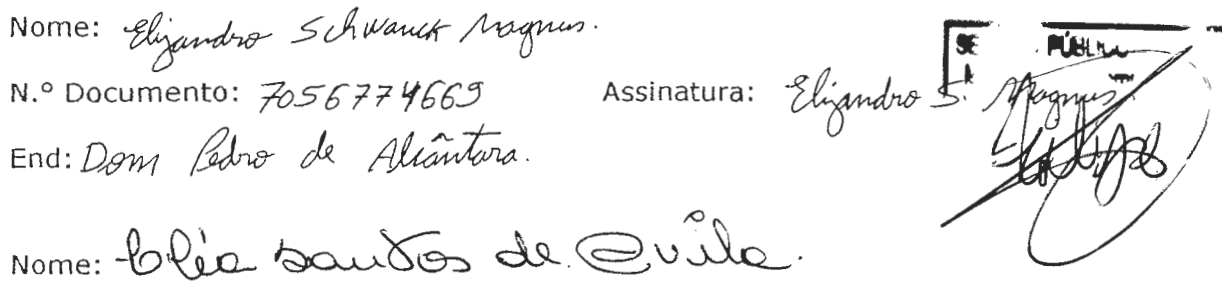 Nome: Elijandro Schwanck Magnus.
N.º Documento: 7056774669 Assinatura: Elijandro S. Magnus.
End: Dom Pedro de Alcântara.
Nome: Cléa Santos de Avila.